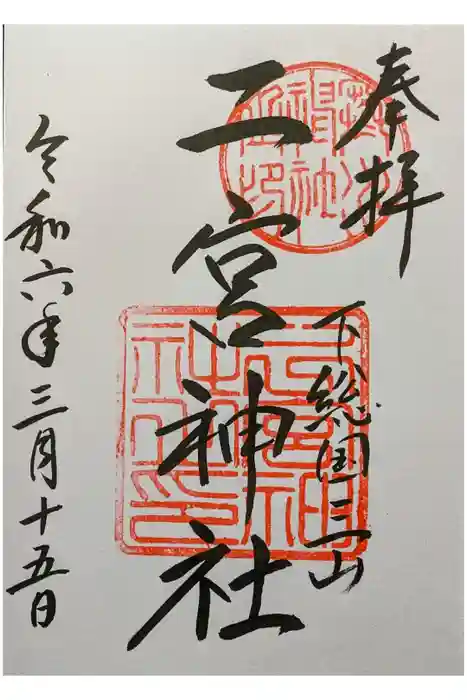 奉拝
下総国三山
二宮神社
令和六年三月十五日